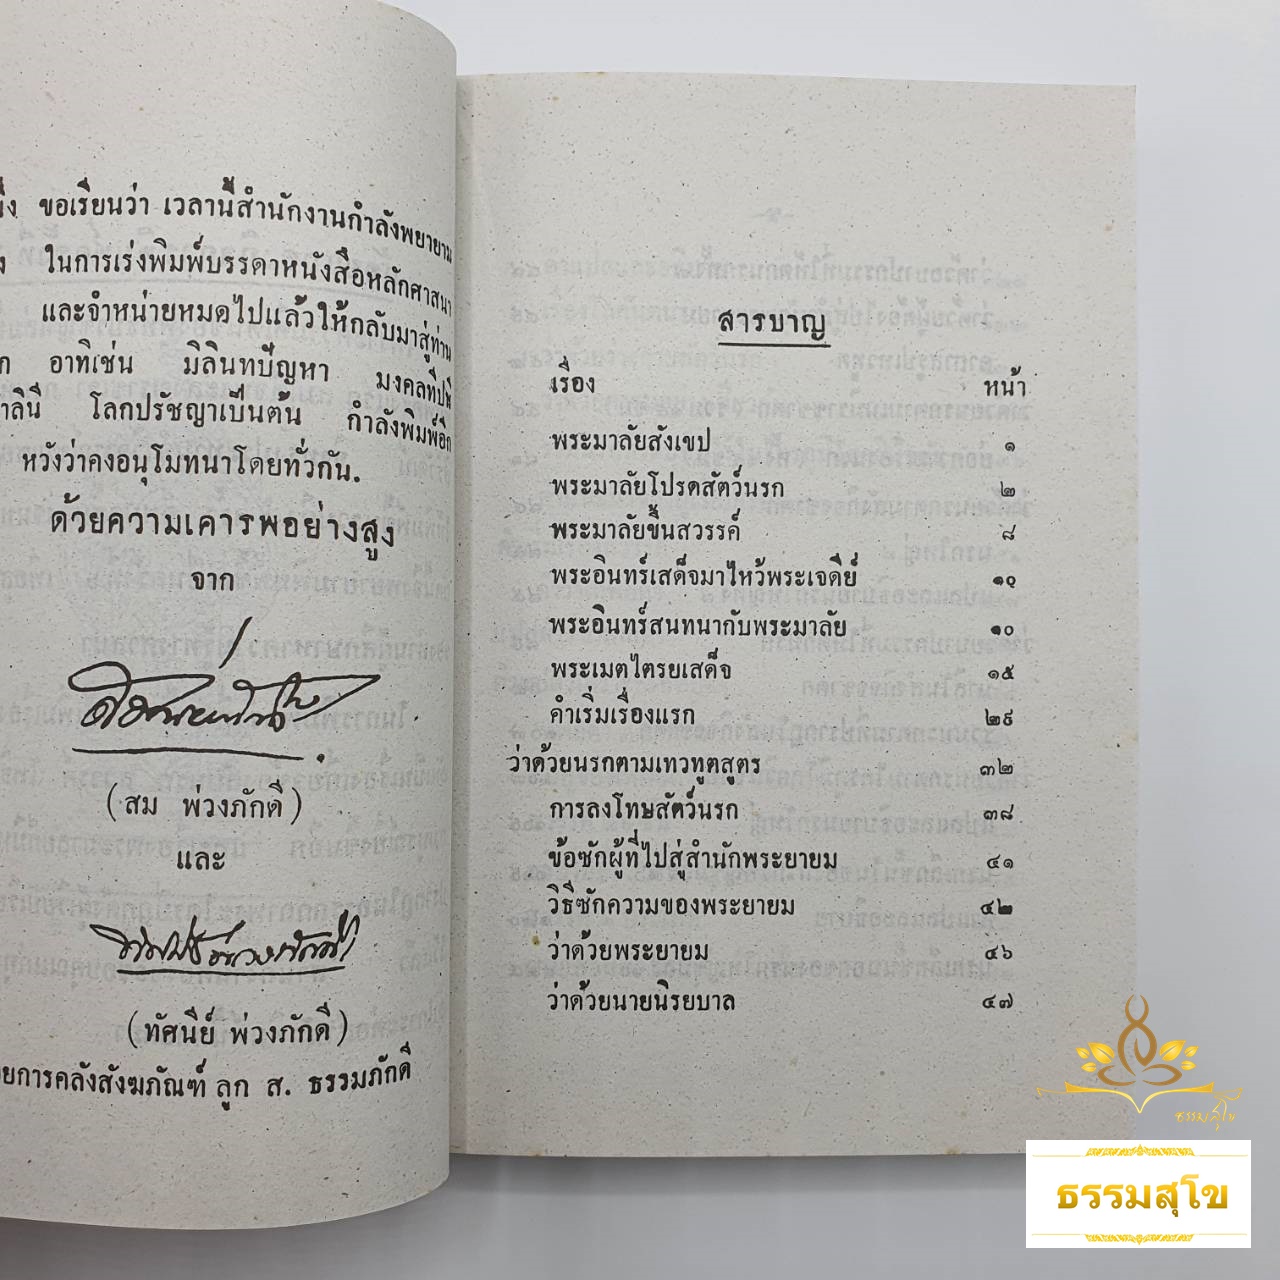 ขอเรียนว่า เวลานี้สำนักงานกำลังพยายาม
ในการเร่งพิมพ์บรรดาหนังสือหลักศาสนา
และจำหน่ายหมดไปแล้วให้กลับมาสู่ท่าน
อาทิเช่น มิลินทปัญหา มงคลทีปนี
โลกปรัชญาเป็นต้น กำลังพิมพ์อีก
หวังว่าคงอนุโมทนาโดยทั่วกัน.
ด้วยความเคารพอย่างสูง
จาก
(สม พ่วงภักดี)
และ
(ทัศนีย์ พ่วงภักดี)
ยการคลังสังฆภัณฑ์ ลูก ส. ธรรมภักดี
สารบาญ
เรื่อง หน้า
พระมาลัยสังเขป ๑
พระมาลัยโปรดสัตว์นรก ๒
พระมาลัยขึ้นสวรรค์ ๘
พระอินทร์เสด็จมาไหว้พระเจดีย์ ๑๐
พระอินทร์สนทนากับพระมาลัย ๑๐
พระเมตไตรยเสด็จ ๑๕
คำเริ่มเรื่องแรก ๒๙
ว่าด้วยนรกตามเทวทูตสูตร ๓๒
การลงโทษสัตว์นรก ๓๘
ข้อซักผู้ที่ไปสู่สำนักพระยายม ๔๑
วิธีซักความของพระยายม ๔๒
ว่าด้วยพระยายม ๔๖
ว่าด้วยนายนิรยบาล ๔๗
ธรรมสุโข
ธรรมสุโข